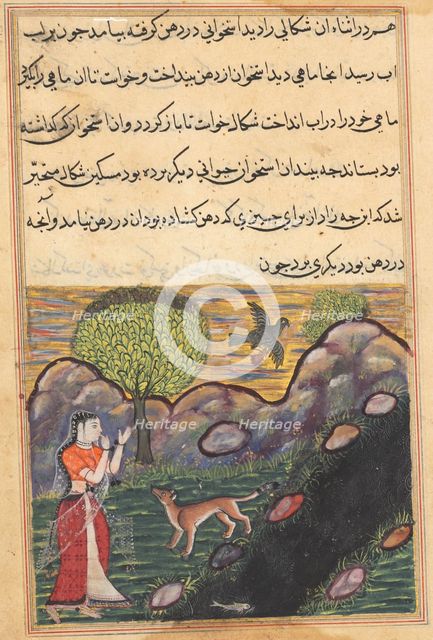 هم در اثناء ان شکالی را دید استخوانی در دهن کرفته بیامد چون بر لب
اب رسید انجا ماهی دید استخوان از دهن بینداخت و خواست تا ان ماهی را بکیرد
ماهی خود را در اب انداخت شکال خواست تا باز کردد و ان استخوان که کذاشته
بود بستاند چه بیند ان استخوان حیوانی دیکر برده بود مسکین شکال متحیّر
شد که این چه زاد از برای چیزی که دهن کشاده بود ان در دهن نیامد و انچه
در دهن بود دیکری برد چون
Heritage Heritage
Heritage Heritage
Heritage Heritage